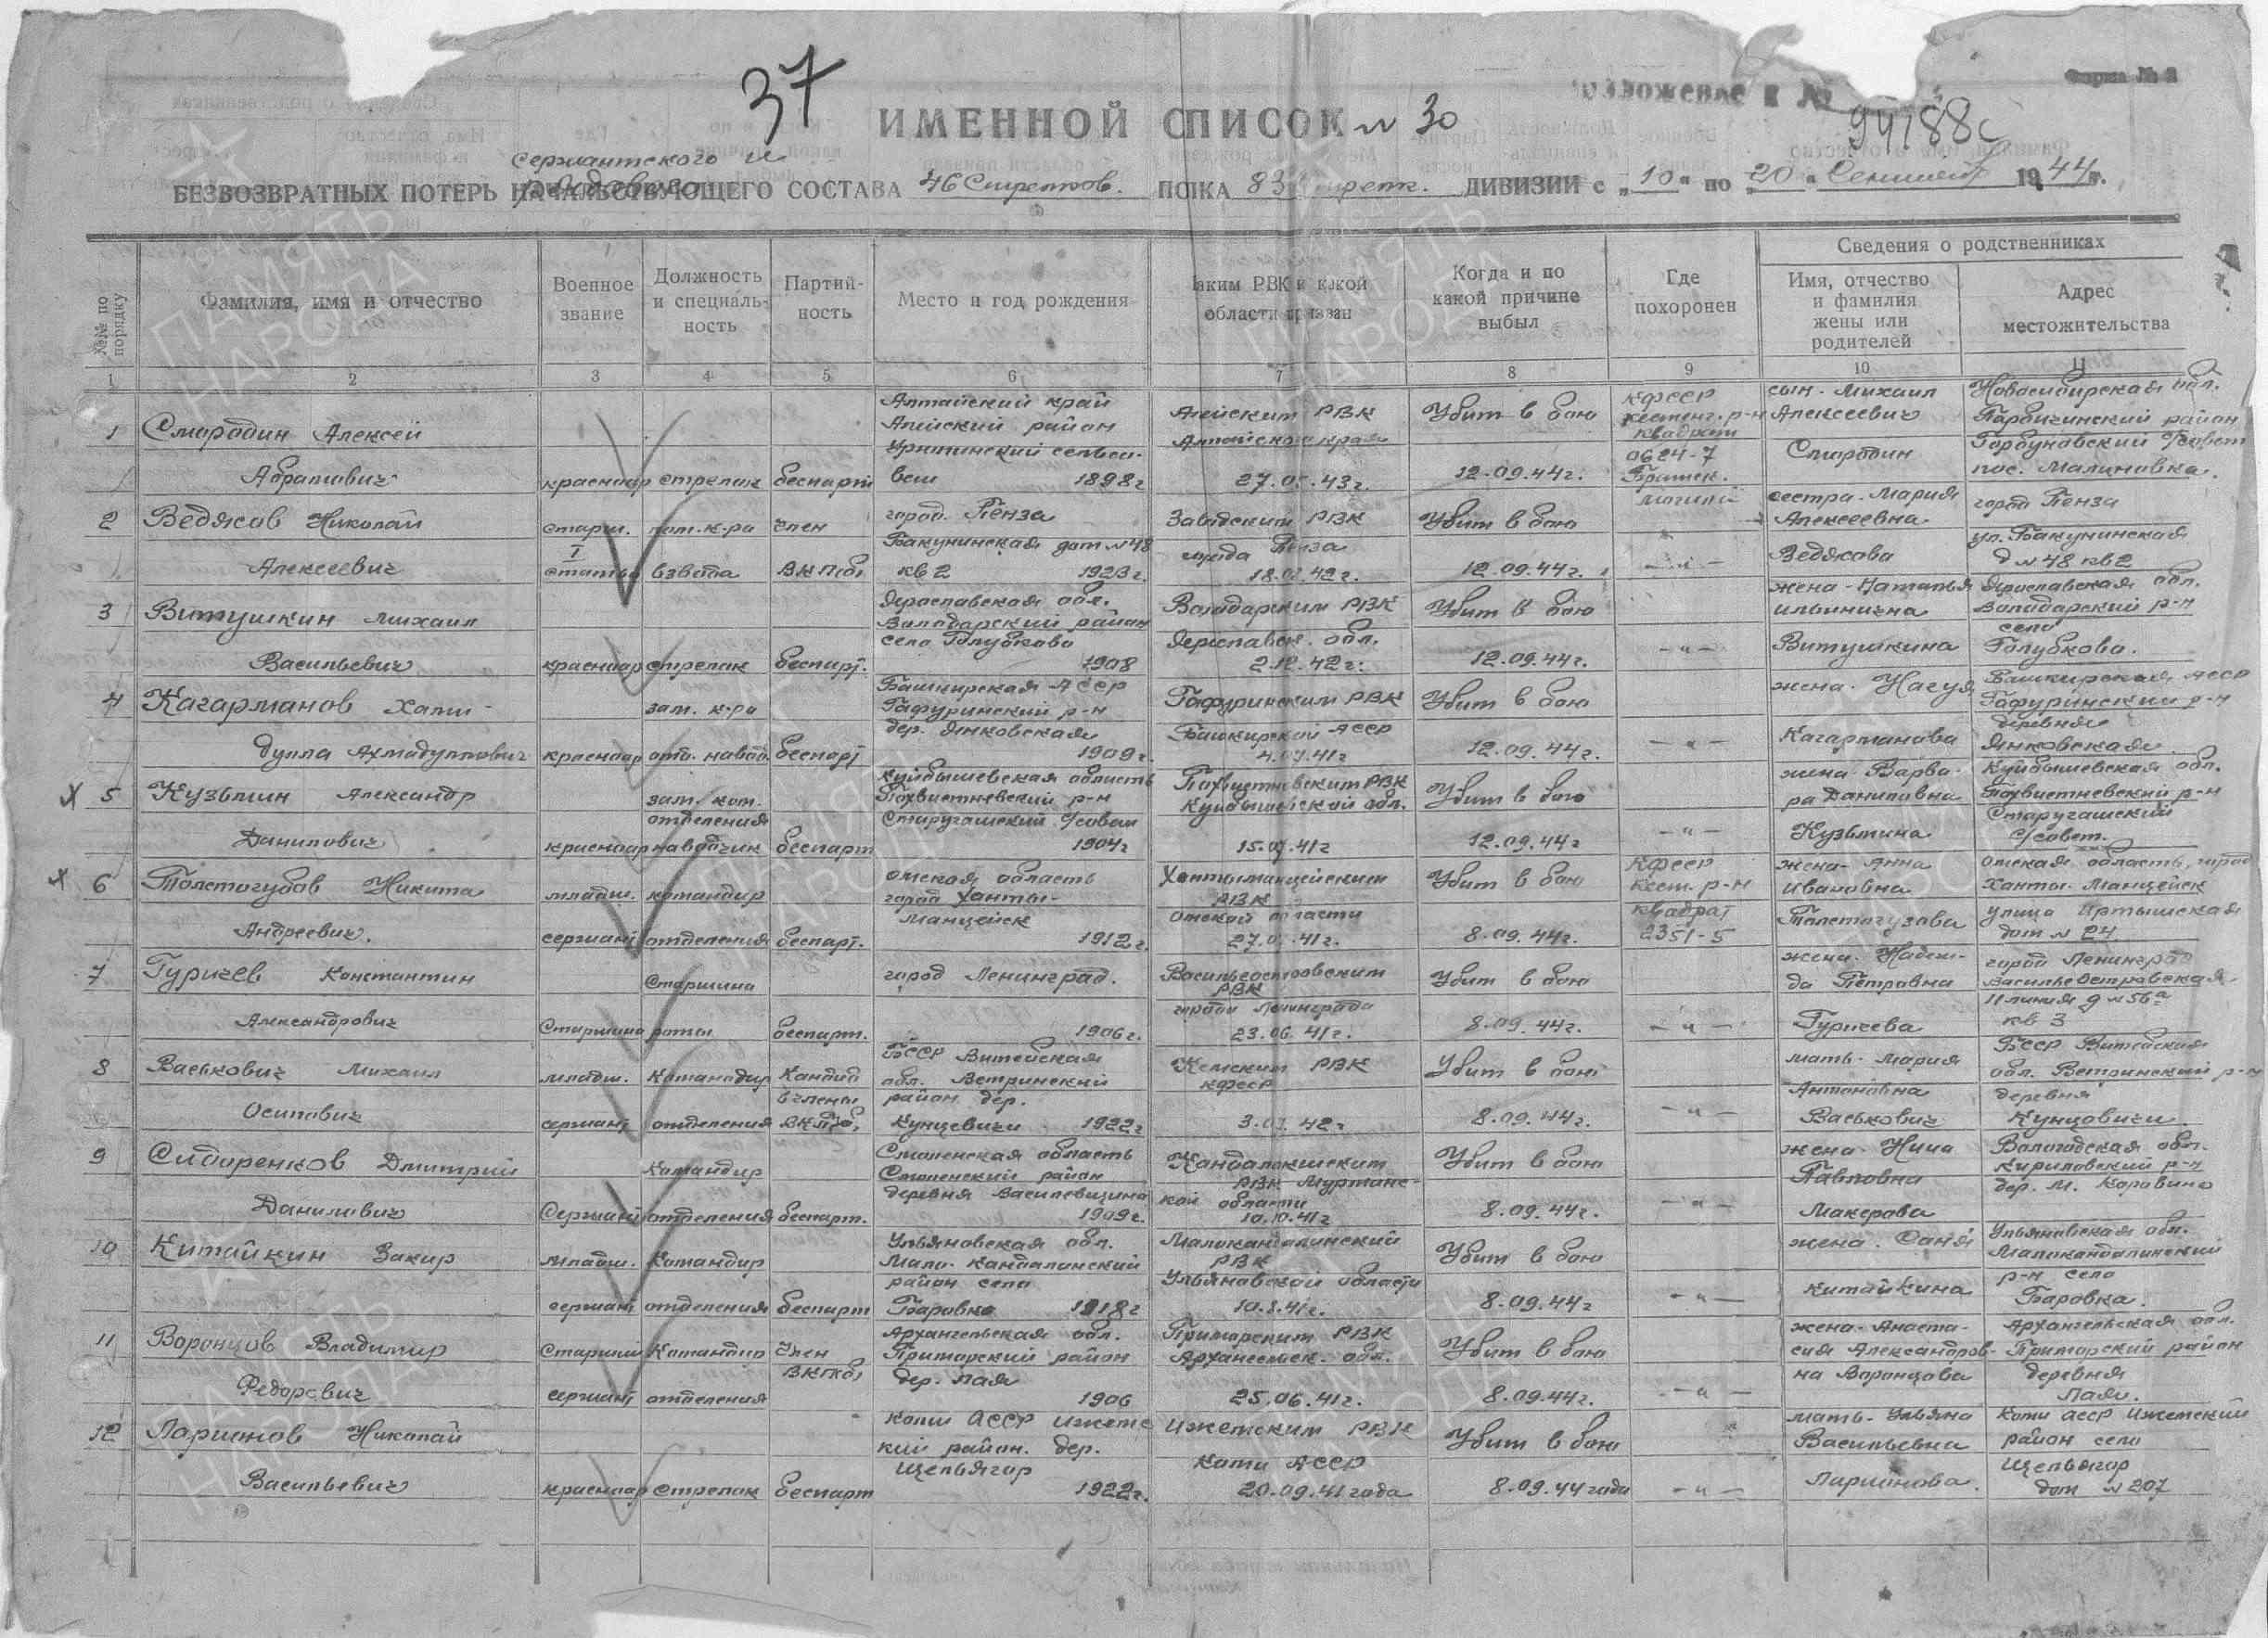 37
Форма № 2
ИМЕННОЙ СПИСОК № 30
94788с
сержантского и
рядового
БЕЗВОЗВРАТНЫХ ПОТЕРЬ НАЧАЛЬСТВУЮЩЕГО СОСТАВА 46 Стрелков. ПОЛКА 83 ДИВИЗИИ с „10“ по „20“ Сентября 1944 г.
№№ по порядку
Фамилия, имя и отчество
Военное звание
Должность и специаль-ность
Партий-ность
Место и год рождения
Каким РВК и какой области призван
Когда и по какой причине выбыл
Где похоронен
Сведения о родственниках
Имя, отчество и фамилия жены или родителей
Адрес местожительства
1 2 3 4 5 6 7 8 9 10 11
1 Смородин Алексей
Абрамович
красноар стрелок беспарт
Алтайский край
Алейский район
Урлитинский сельсо-
вет 1898г
Алейским РВК
Алтайского края
Убит в бою
12.09.44г.
КФССР
кестенг. р-н
квадрат
0624-7
Братск.
могила
сын - Михаил
Алексеевич
Смородин
Новосибирская обл.
район
с/совет
пос. Малиновка.
2 Ведясов Николай
Алексеевич
старш. I статьи
пом. к-ра взвода
член ВКП(б)
город. Пенза
Бакунинская дом №48
кв 2 1923г.
Заводским РВК
города Пенза
Убит в бою
12.09.44г.
— " —
сестра - Мария
Алексеевна
Ведясова
город Пенза
ул. Бакунинская
д №48 кв 2
3 Витушкин Михаил
Васильевич
красноар стрелок беспарт.
Ярославская обл.
Володарский район
село Голубково
1908
Володарским РВК
Ярославск. обл.
2.12.42г.
Убит в бою
12.09.44г.
— " —
жена - Наталья
Ильинична
Витушкина
Ярославская обл.
Володарский р-н
село
Голубково.
4 Кагарманов Хами-
дулла Ахмадуллович
красноар
зам. к-ра
отд. навод.
беспарт
Башкирская АССР
Гафуринский р-н
дер. Янковская
1909г.
Гафуринским РВК
Башкирской АССР
Убит в бою
12.09.44г.
— " —
жена - Нагуя
Кагарманова
Башкирская АССР
Гафуринский р-н
деревня
Янковская.
Х 5 Кузьмин Александр
Данилович
красноар
зам. ком.
отделения
наводчик
беспарт
Куйбышевская область
Похвистневский р-н
Стругашский с/совет
1904г
Похвистневским РВК
Куйбышевской обл.
Убит в бою
12.09.44г
— " —
жена - Варва-
ра Даниловна
Кузьмина
Куйбышевская обл.
Похвистневский р-н
Старугашский
с/совет.
Х 6 Толстогубов Никита
Андреевич.
младш.
сержант
командир
отделения
беспарт.
Омская область
город Ханты-
Мансийск
1912г.
РВК
Омской области
Убит в бою
8.09.44г.
КФССР
Кест. р-н
квадрат
2351-5
жена - Анна
Ивановна
Омская область, город
Ханты-Мансийск
улица Иртышская
дом № 24.
7 Гуричев Константин
Александрович
Старшина
Старшина
роты
беспарт.
город Ленинград.
1906г.
Васильеостровским
РВК
города Ленинграда
23.06.41г.
Убит в бою
8.09.44г.
— " —
жена - Надеж-
да Петровна
Гуричева
город Ленинград
Васильеостровская
11 линия д №56а
кв 3
8 Васькович Михаил
Осипович
младш.
сержант
Командир
отделения
Кандид
в члены
ВКП(б)
БССР Витебская
обл. Ветринский
район дер.
Кунцевичи 1922г
Кемским РВК
КФССР
Убит в бою
8.09.44г.
— " —
мать - Мария
Антоновна
Васькович
БССР Витебская
обл. Ветринский р-н
деревня
Кунцовичи
9 Сидоренков Дмитрий
Данилович
Сержант
Командир
отделения
беспарт.
Смоленская область
Смоленский район
деревня Василевщина
1909г.
Кандалакшским
РВК Мурманс-
кой области
10.10.41г
Убит в бою
8.09.44г.
— " —
жена - Нина
Павловна
Макерова
Вологодская обл.
Кириловский р-н
дер. М. Коровино
10 Китайкин Закир
младш.
сержант
Командир
отделения
беспарт
Ульяновская обл.
Мало-Кандалинский
район село
Боровка 1918г
Малокандалинский
РВК
Ульяновской области
Убит в бою
8.09.44г
— " —
жена -
Китайкина
Ульяновская обл.
Малокандалинский
р-н село
Боровка.
11 Воронцов Владимир
Федорович
Старший
сержант
Командир
отделения
Член
ВКП(б)
Архангельская обл.
Приморский район
дер. Лая
1906
Приморским РВК
Архангельск. обл.
25.06.41г.
Убит в бою
8.09.44г.
— " —
жена - Анаста-
сия Александров-
на Воронцова
Архангельская обл.
Приморский район
деревня
Лая.
12 Ларионов Николай
Васильевич
красноар стрелок беспарт
Коми АССР Ижемс
кий район. дер.
Щельягор
1922г.
Ижемским РВК
Коми АССР
20.09.41 года
Убит в бою
8.09.44 года
— " —
мать - Ульяна
Васильевна
Ларионова.
Коми АССР Ижемский
район село
Щельягор
дом № 207